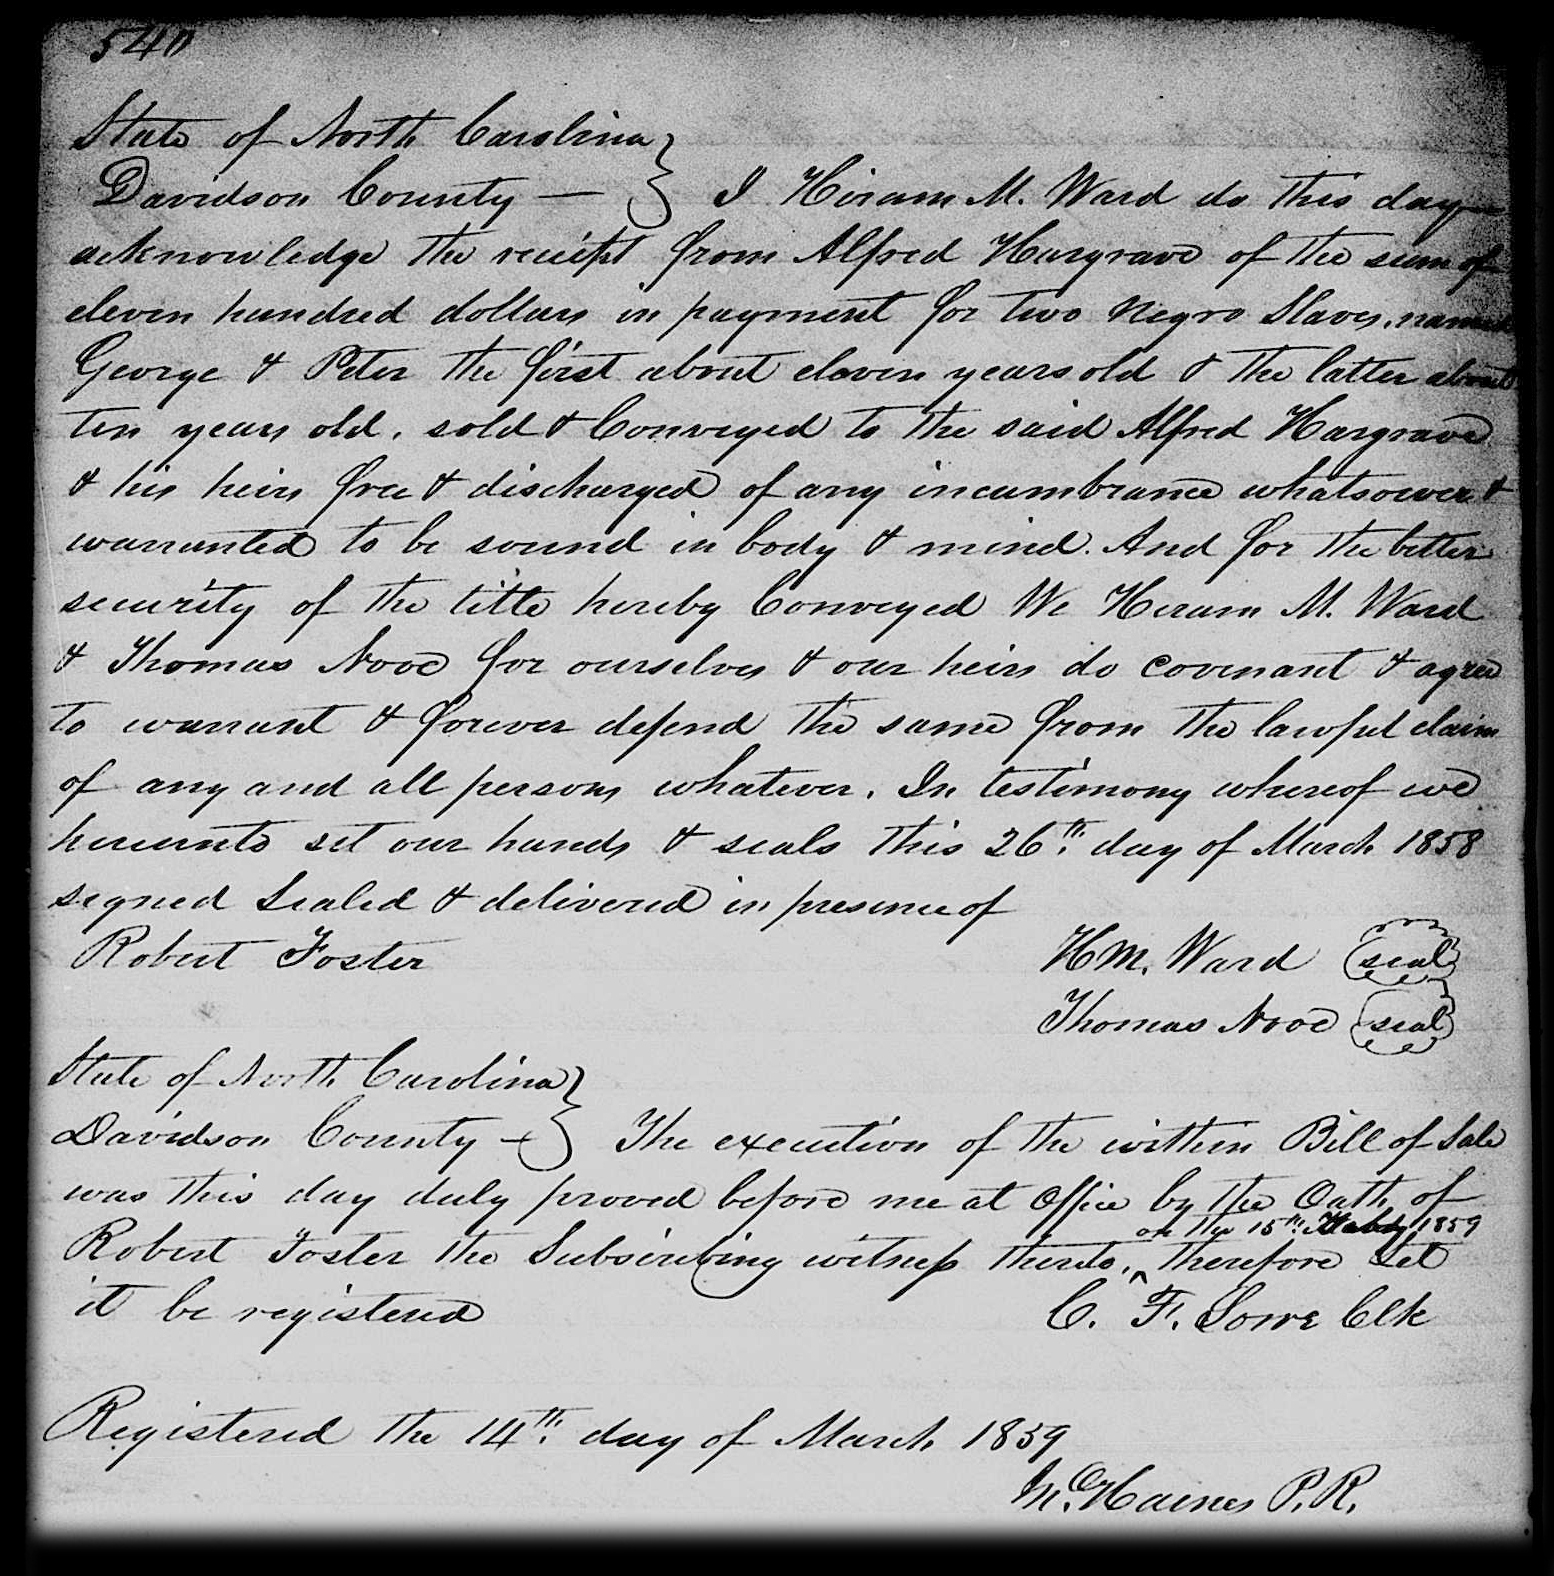 540
State of North Carolina }
Davidson County — } I Hiram M. Ward do this day
acknowledge the receipt from Alfred Hargrave of the sum of
eleven hundred dollars in payment for two Negro Slaves, named
George & Peter the first about eleven years old & the latter about
ten years old. sold & Conveyed to the said Alfred Hargrave
& his heirs free & discharged of any incumbrance whatsoever &
warranted to be sound in body & mind. And for the better
security of the title hereby Conveyed We Hiram M. Ward
& Thomas Nooe for ourselves & our heirs do covenant & agree
to warrant & forever defend the same from the lawful claim
of any and all persons whatever. In testimony whereof we
hereunto set our hands & seals this 26th. day of March 1858
signed Sealed & delivered in presence of
Robert Foster H M. Ward seal
Thomas Nooe seal
State of North Carolina }
Davidson County — } The execution of the within Bill of Sale
was this day duly proved before me at Office by the Oath of
on the 15th. 1859
Robert Foster the Subscribing witness thereto. ^ therefore Let
it be registered C. F. Lowe Clk
Registered the 14th. day of March 1859
Haines P. R.